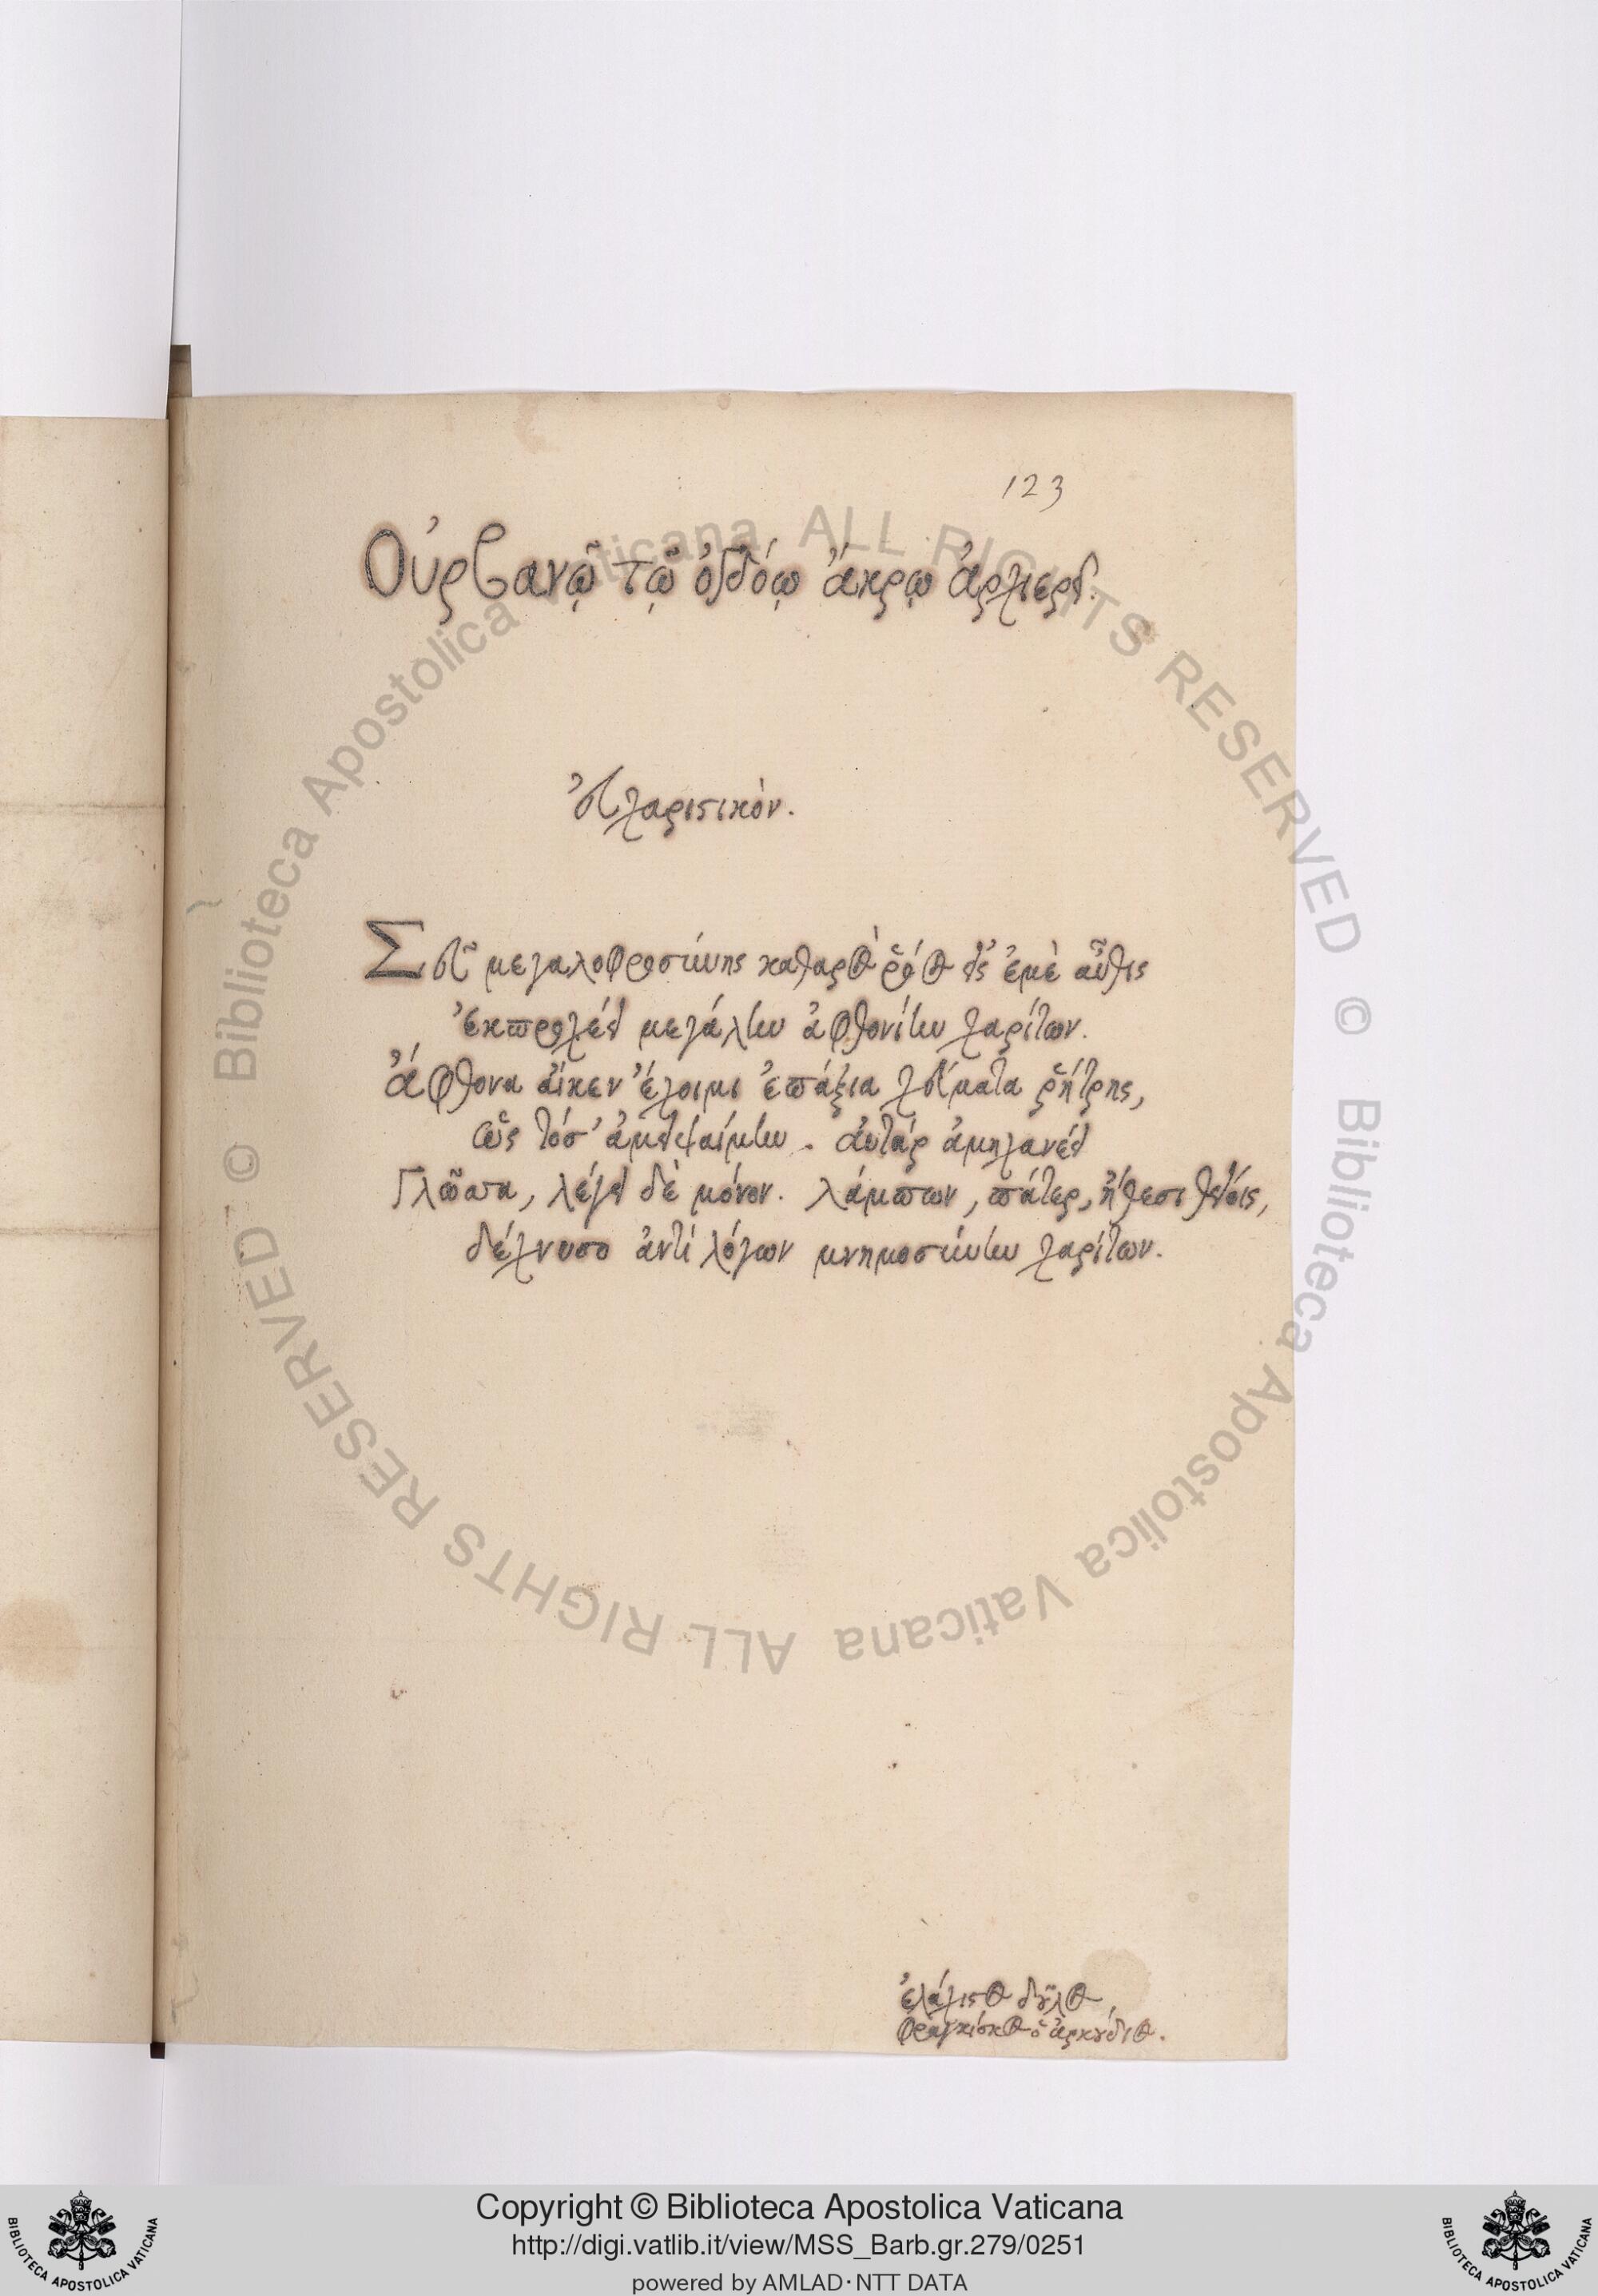 123
Οὐρβανῷ τῷ ὀγδόῳ ἄκρῳ ἀρχιερεῖ.
εὐχαριστικόν.
Σεῦ μεγαλοφροσύνης καθαρὸς ῥόος εἰς ἐμὲ αὖθις
ἐκπροχέει μεγάλην ἀφθονίην χαρίτων.
ἄφθονα αἴκεν ἔχοιμι ἐπάξια χεύματα ῥήτρης,
ὡς τόσ' ἀμειψαίμην. αὐτὰρ ἀμηχανέει
Γλῶσσα, λέγει δὲ μόνον. λάμπων, πάτερ, ἤθεσι θείοις,
δέχνυσο ἀντὶ λόγων μνημοσύνην χαρίτων.
ἐλάχιστος δοῦλος
φραγκίσκος ὁ ἀρκούδιος.
Copyright © Biblioteca Apostolica Vaticana
http://digi.vatlib.it/view/MSS_Barb.gr.279/0251
powered by AMLAD·NTT DATA
BIBLIOTECA APOSTOLICA VATICANA
BIBLIOTECA APOSTOLICA VATICANA
© Biblioteca Apostolica Vaticana ALL RIGHTS RESERVED
© Biblioteca Apostolica Vaticana ALL RIGHTS RESERVED